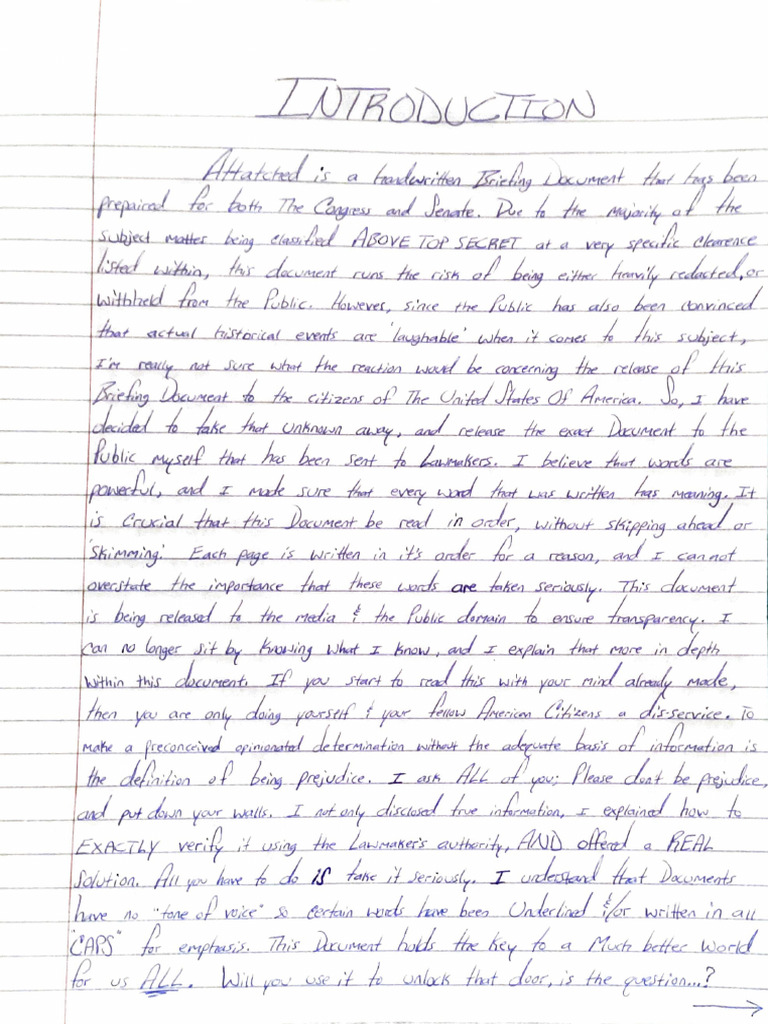 INTRODUCTION
Attatched is a handwritten Briefing Document that has been
prepaired for both The Congress and Senate. Due to the majority of the
subject matter being classified ABOVE TOP SECRET at a very specific clearence
listed within, this document runs the risk of being either heavily redacted, or
withheld from the Public. However, since the Public has also been convinced
that actual historical events are 'laughable' when it comes to this subject,
I'm really not sure what the reaction would be concerning the release of this
Briefing Document to the citizens of The United States Of America. So, I have
decided to take that unknown away, and release the exact Document to the
Public myself that has been sent to Lawmakers. I believe that words are
powerful, and I made sure that every word that was written has meaning. It
is crucial that this Document be read in order, without skipping ahead or
'skimming'. Each page is written in it's order for a reason, and I can not
overstate the importance that these words are taken seriously. This document
is being released to the media & the Public domain to ensure transparency. I
can no longer sit by knowing what I know, and I explain that more in depth
within this document. If you start to read this with your mind already made,
then you are only doing yourself & your fellow American Citizens a dis-service. To
make a preconceived opinionated determination without the adequate basis of information is
the definition of being prejudice. I ask ALL of you; Please dont be prejudice,
and put down your walls. I not only disclosed true information, I explained how to
EXACTLY verify it using the Lawmaker's authority, AND offered a REAL
solution. All you have to do is take it seriously. I understand that Documents
have no "tone of voice" so certain words have been Underlined &/or written in all
"CAPS" for emphasis. This Document holds the key to a Much better World
for us ALL. Will you use it to unlock that door, is the question...?
→